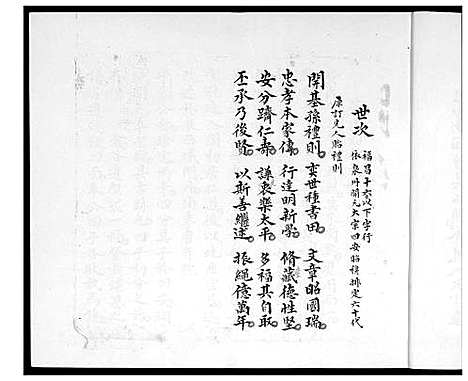 世次 福昌十六以下字行
依泉州開元大宗四安昭穆排定六十代
原訂見人貽禮則
開基孫禮則 奕世種書田 文章昭國瑞
忠孝本家傳 行達明新學 脩藏德性堅
安分躋仁壽 謙衷樂太平 多福其自取
丕承乃後賢 以新善繼述 振繩億萬年